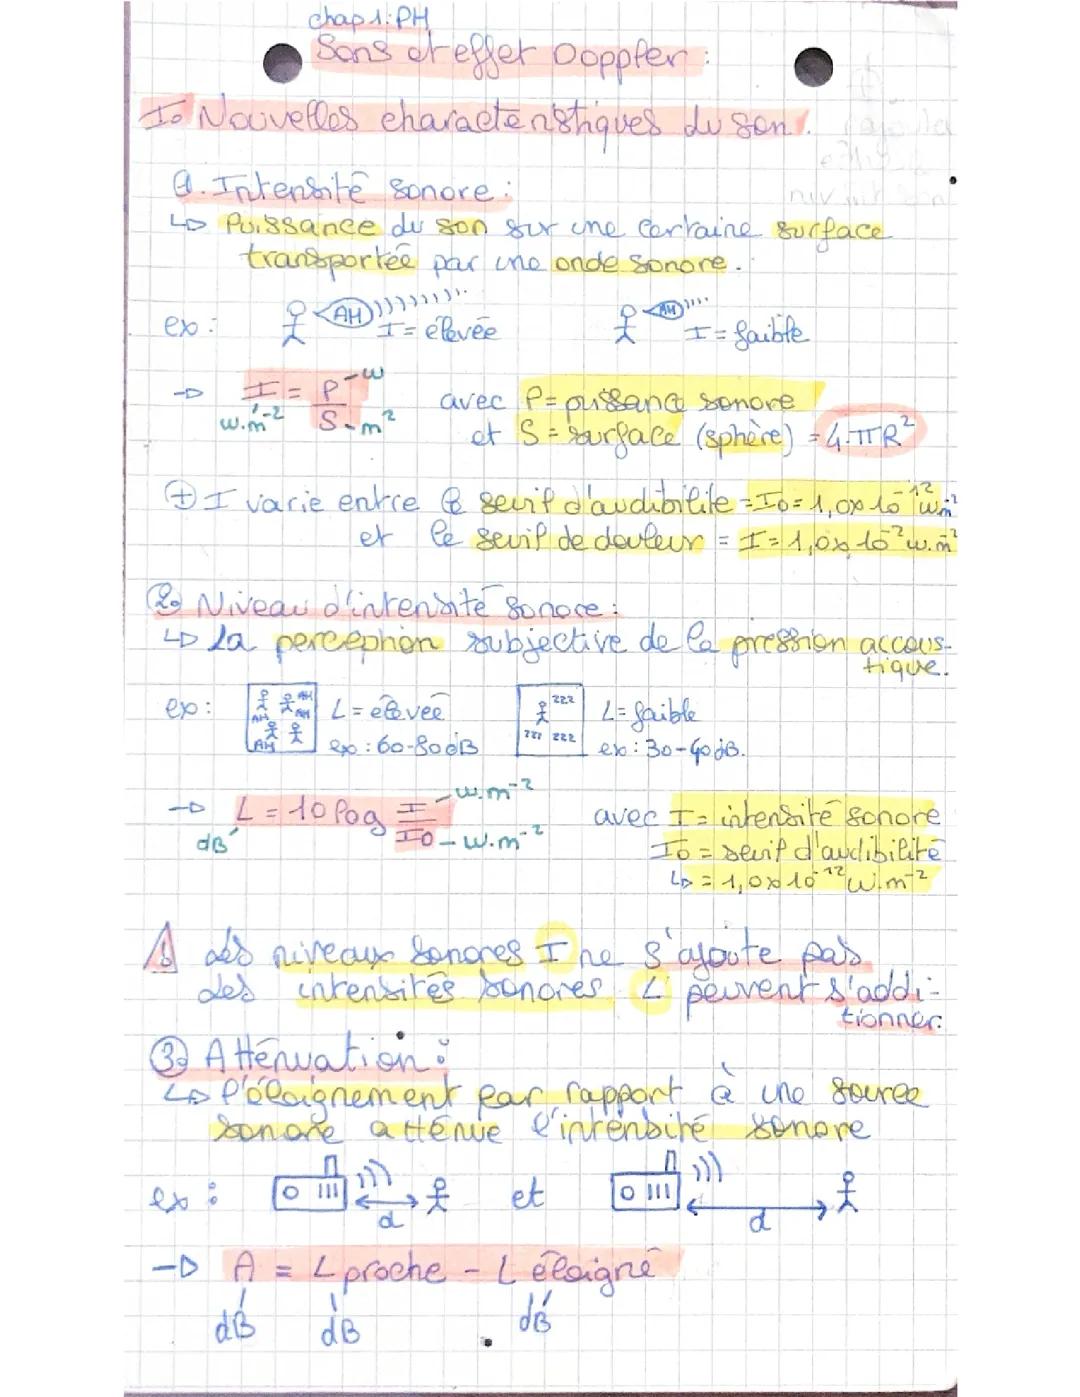 chap 1: PH
Sons et effet Doppler :
I. Nouvelles charactéristiques du son.
1. Intensité sonore :
↳ Puissance du son sur une certaine surface
transportée par une onde sonore.
ex : AH )))))))))) I = élevée AH )))) I = faible
→ I = P/S W.m⁻² W m² avec P = puissance sonore
et S = surface (sphère) = 4.πR²
⊕ I varie entre le seuil d'audibilite = I0 = 1,0x10⁻¹² W.m⁻²
et le seuil de douleur = I = 1,0x10⁻² W.m⁻²
② Niveau d'intensité sonore :
↳ La perception subjective de la pression accous-
tique.
ex : AH AH AH AH L = élevée zzz zzz zzz L = faible
ex : 60-80dB ex : 30-40dB.
→ L = 10 log I/I0 dB W.m⁻² W.m⁻² avec I = intensité sonore
I0 = seuil d'audibilité
↳ = 1,0x10⁻¹² W.m⁻²
⚠ des niveaux sonores I ne s'ajoute pas
des intensités sonores L peuvent s'addi-
tionner.
③ Atténuation :
↳ l'éloignement par rapport à une source
sonore atténue l'intensité sonore
ex : d et d
→ A = L proche - L éloigné
dB dB dB